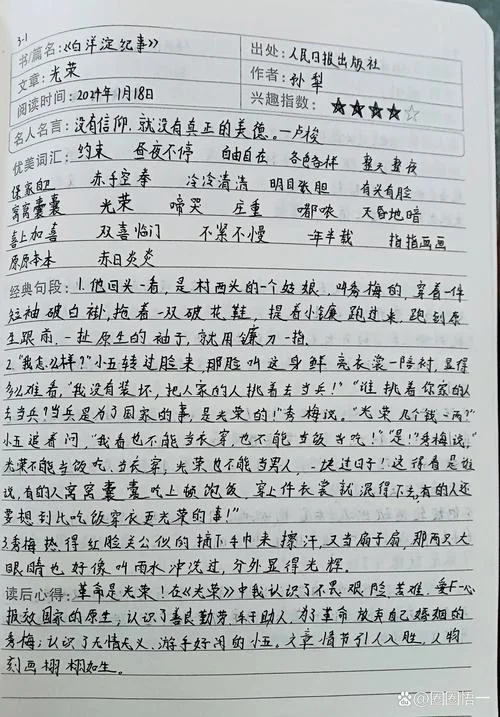 3-1
书/篇名:《白洋淀纪事》 出处:人民日报出版社
文章:光荣 作者:孙犁
阅读时间:2024年1月18日 兴趣指数:★★★★☆
名人名言:没有信仰,就没有真正的美德。—卢梭
优美词汇:约束 昼夜不停 自由自在 各色各样 整天整夜
保家卫 赤手空拳 冷冷清清 明目张胆 有头有脸
窝窝囊囊 光荣 啼哭 庄重 嘟哝 天昏地暗
喜上加喜 双喜临门 不紧不慢 一年半载 指指画画
原原本本 赤日炎炎
经典句段:1.他回头一看,是村西头的一个姑娘,叫秀梅的,穿着一件
短袖破白褂,拖着一双破花鞋,提着小镰跑过来,跑到原
生跟前,一扯原生的袖子,就用镰刀一指。
2."我怎么样?"小五转过脸来,那脸叫这身鲜亮衣裳一陪衬,显得
多么难看,"我没有装坏,把人家的人挑着去当兵!""谁挑着你家的人
去当兵?当兵是为了国家的事,是光荣的!"秀梅说。"光荣几个钱一两?"
小五追着问,"我看也不能当衣穿,也不能当饭吃!""是!"秀梅说,"
光荣不能当饭吃、当衣穿;光荣也不能当男人,一块过日子!这得看是谁
说,有的人窝窝囊囊吃上顿饱饭,穿上件衣裳就混得下去,有的人还
要想到比吃饭穿衣更光荣的事!"
3.秀梅热得红脸关公似的,摘下手巾来擦汗,又当扇子扇,那两只大
眼睛也好像叫雨水冲洗过,分外显得光辉。
读后心得:革命是光荣!在《光荣》中我认识了不畏艰险、苦难,要一心
报效国家的原生;认识了善良勤劳乐于助人、为了革命放弃自己婚姻的
秀梅;认识了无情无义、游手好闲的小五。文章情节引人入胜,人物
刻画栩栩如生。
@圈圈悟一